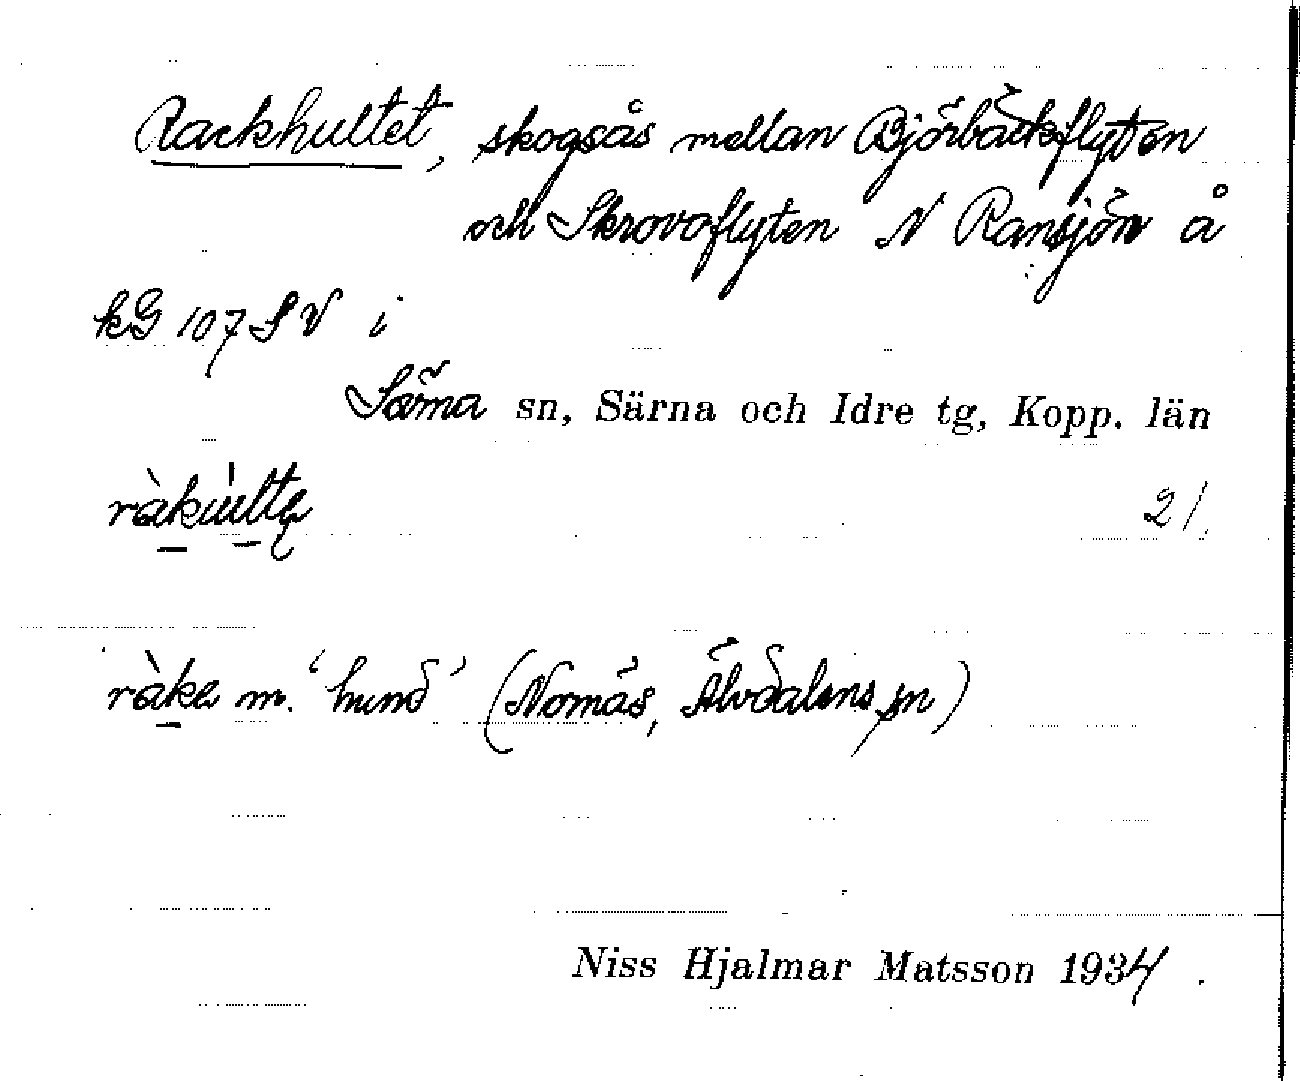 Rackhultet, skogsås mellan Björbäckflyten
och Skrovoflyten N Ransjön å
kG 107 SV i
Särna sn, Särna och Idre tg, Kopp. län
21.
ràke m. 'hund' (Nornäs, Älvdalens sn)
Niss Hjalmar Matsson 1934.